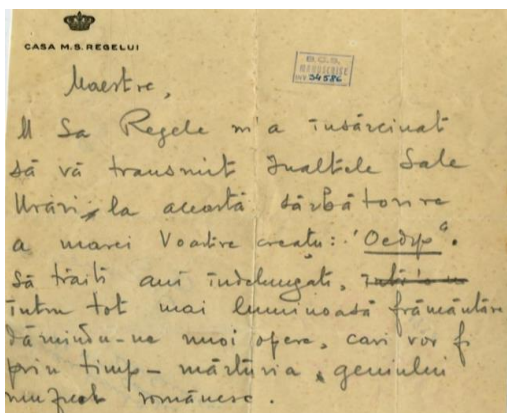 CASA M.S. REGELUI
B.C.S.
MANUSCRISE
INV 34586
Maestre,
M Sa Regele m'a însărcinat
să vă transmit Inaltele Sale
Urări la această sărbătorire
a marei Voastre creații: "Oedip".
Să trăiți ani îndelungați,
întru tot mai luminoasă frământare
dăruindu-ne noui opere, cari vor fi
prin timp - mărturia geniului
românesc.